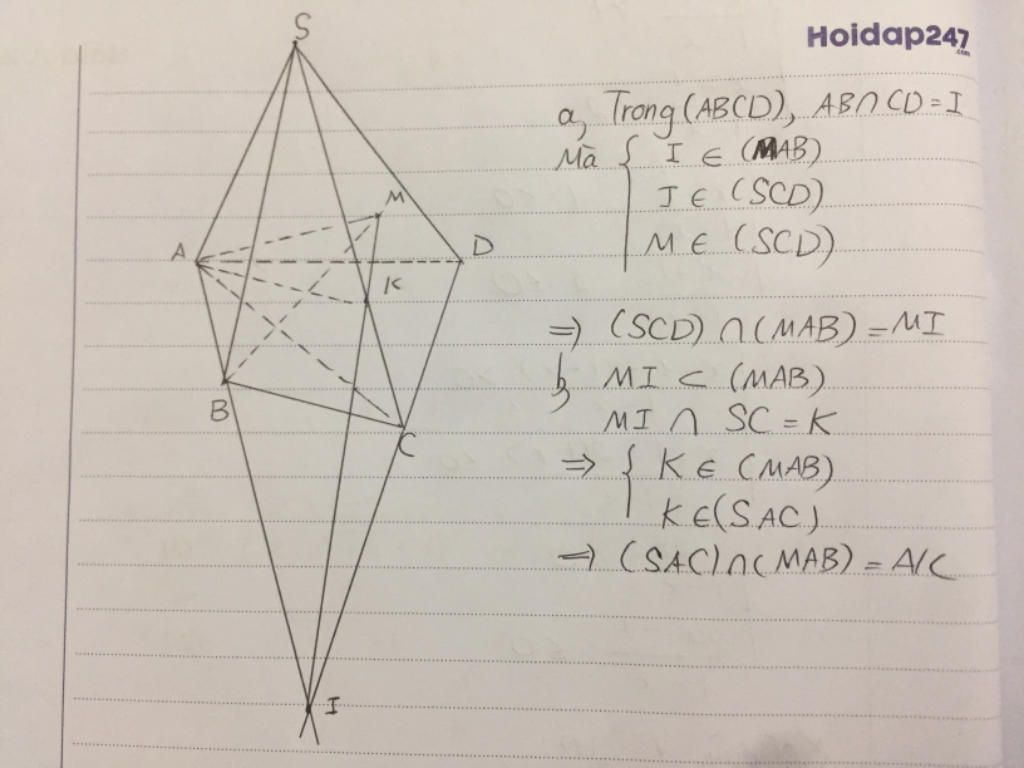 Hoidap247
.com
S
a, Trong (ABCD), AB ∩ CD = I
Mà { I ∈ (MAB)
I ∈ (SCD)
M ∈ (SCD)
M
A
D
K
=) (SCD) ∩ (MAB) = MI
b, MI ⊂ (MAB)
MI ∩ SC = K
B
C
=> { K ∈ (MAB)
K ∈ (SAC)
=) (SAC) ∩ (MAB) = AK
I